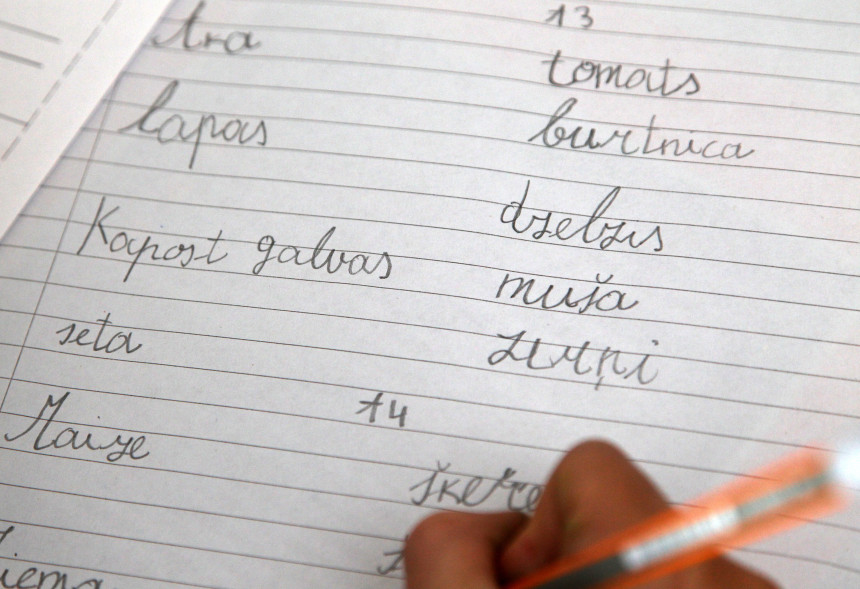 13
tra
tomats
lapas
burtnica
dzelzis
Kapost galvas
muša
seta
zurņi
14
Maize
šķēre
iema